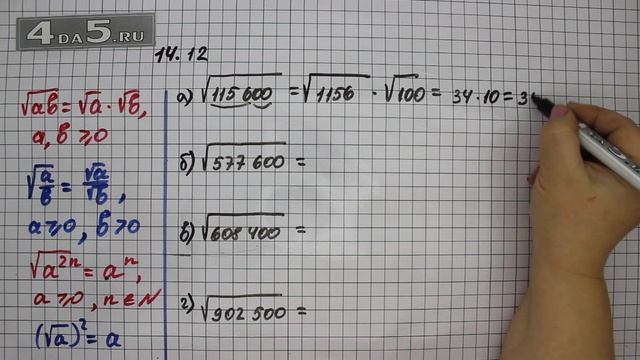 4DA5.RU
14.12
√ab = √a · √b,
a, b ≥ 0
√a/b = √a/√b,
a ≥ 0, b > 0
√a²ⁿ = aⁿ,
a ≥ 0, n ∈ N
(√a)² = a
а) √115 600 = √1156 · √100 = 34 · 10 = 34
б) √577 600 =
в) √608 400 =
г) √902 500 =